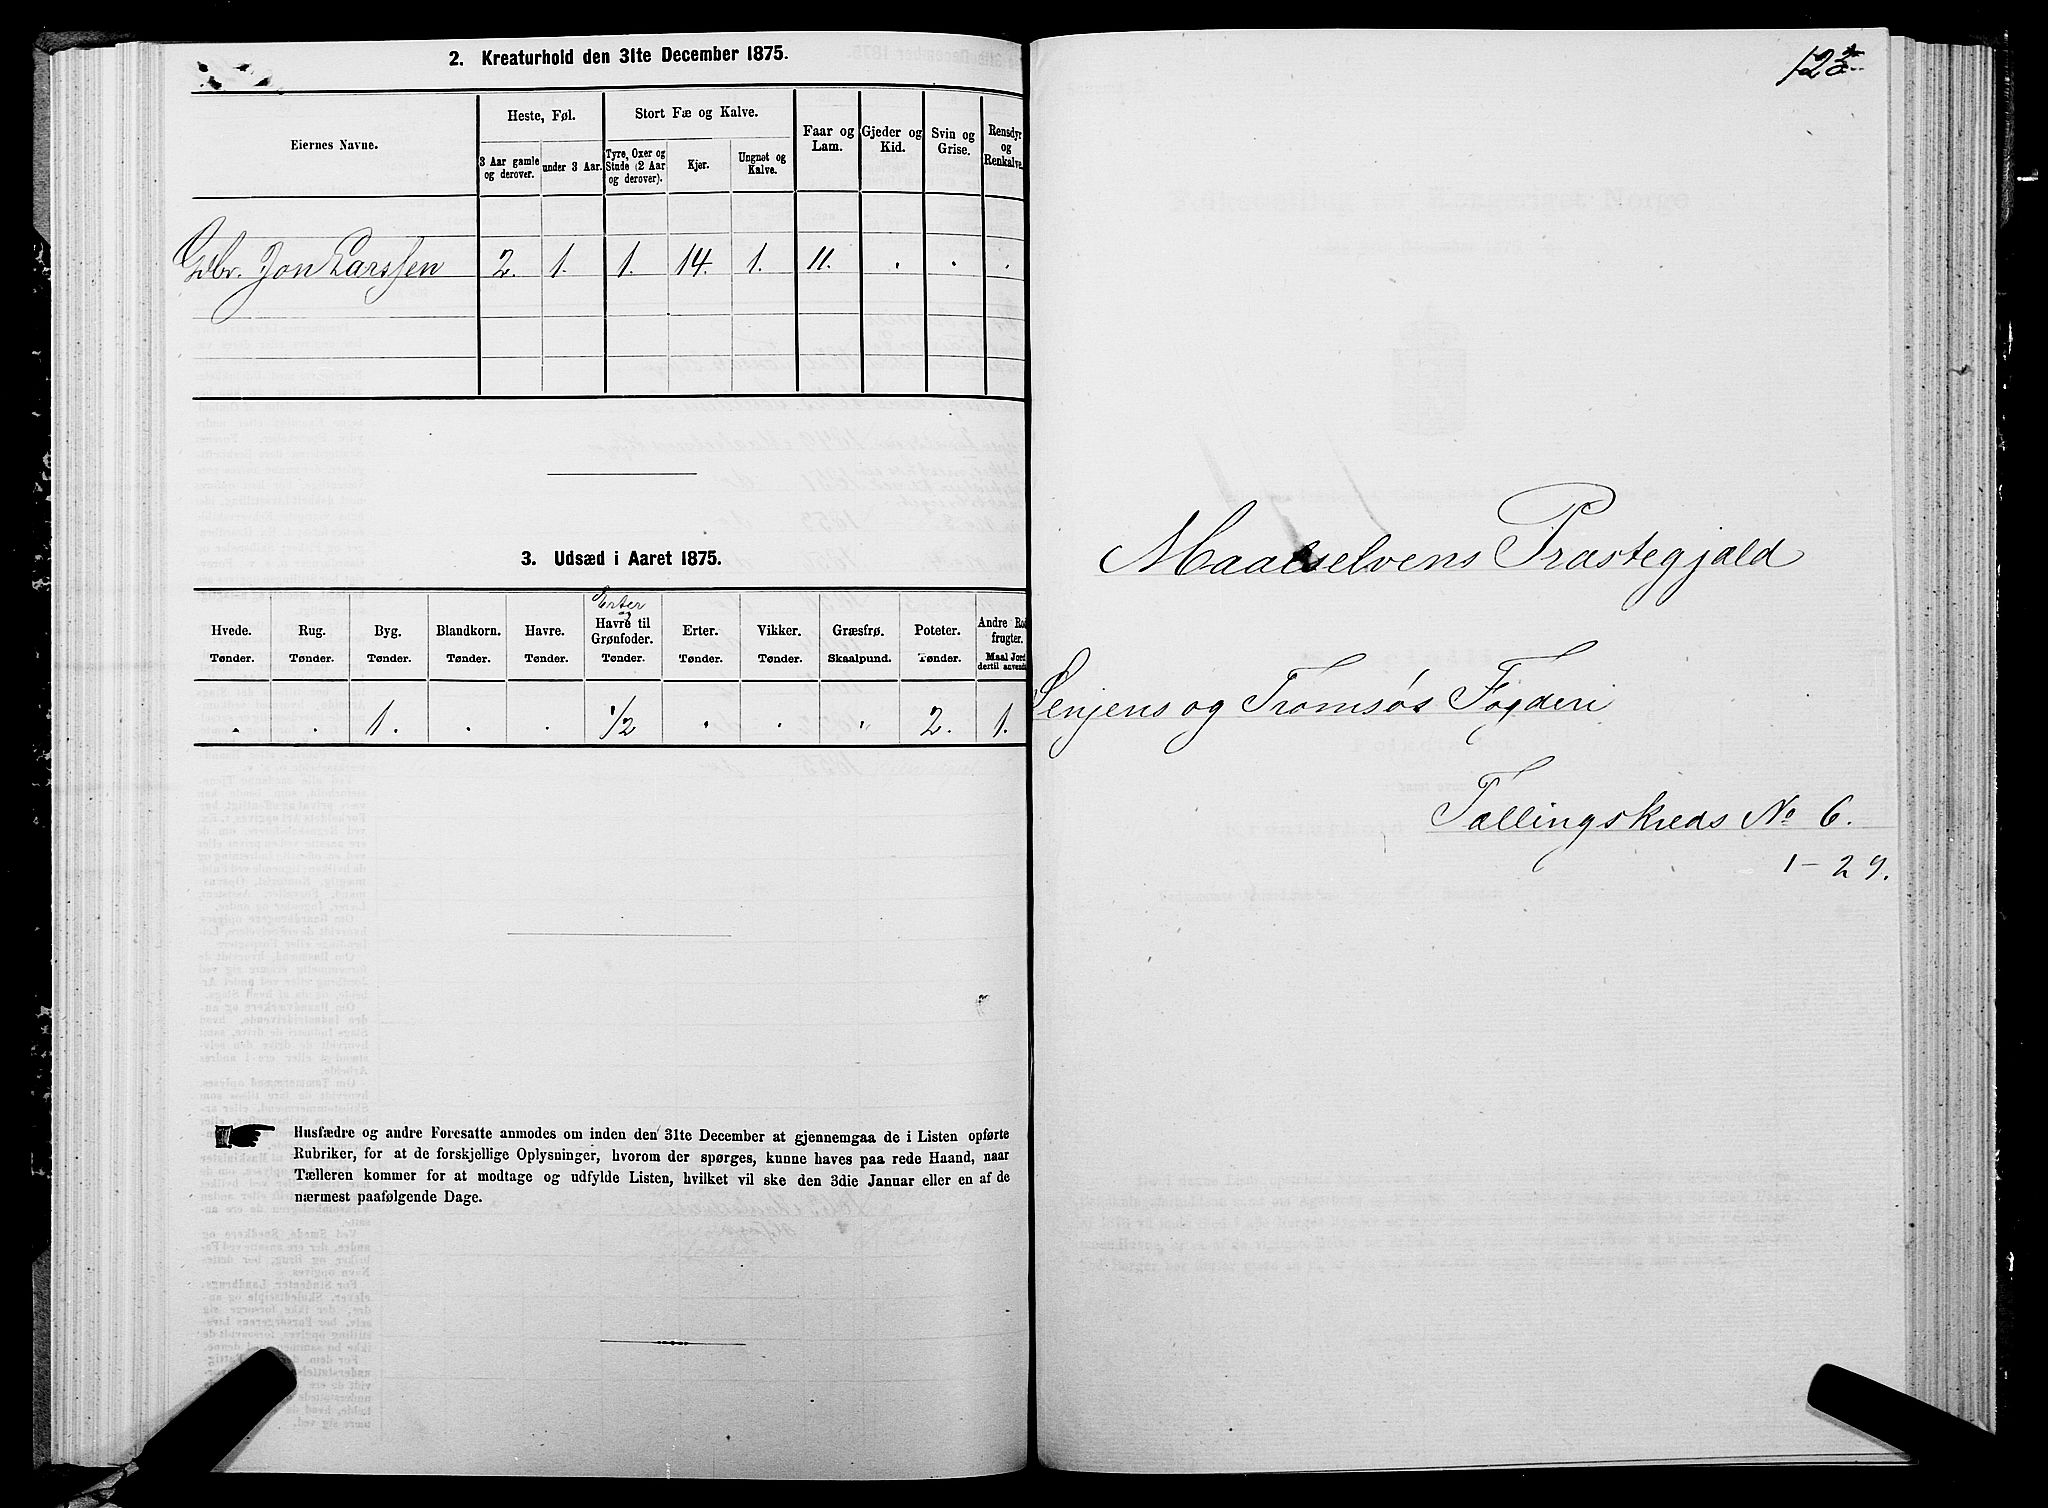 2. Kreaturhold den 31te December 1875.
Eiernes Navne.
Heste, Føl.
Stort Fæ og Kalve.
Faar og Lam.
Gjeder og Kid.
Svin og Grise.
Rensdyr og Renkalve.
3 Aar gamle og derover.
under 3 Aar.
Tyre, Oxer og Stude (2 Aar og derover).
Kjør.
Ungnøt og Kalve.
Gdbr. Jon Larssen 2. 1. 1. 14. 1. 11. . . .
3. Udsæd i Aaret 1875.
Hvede. Tønder.
Rug. Tønder.
Byg. Tønder.
Blandkorn. Tønder.
Havre. Tønder.
Erter og Havre til Grønfoder. Tønder.
Erter. Tønder.
Vikker. Tønder.
Græsfrø. Skaalpund.
Poteter. Tønder.
Andre Ro frugter. Maal Jord dertil anvend
. . 1. . . 1/2 . . " 2. 1.
Husfædre og andre Foresatte anmodes om inden den 31te December at gjennemgaa de i Listen opførte
Rubriker, for at de forskjellige Oplysninger, hvorom der spørges, kunne haves paa rede Haand, naar
Tælleren kommer for at modtage og udfylde Listen, hvilket vil ske den 3die Januar eller en af de
nærmest paafølgende Dage.
Maalselvens Præstegjæld
Senjens og Tromsøs Fogderi
Tællingskreds No 6.
1-29.